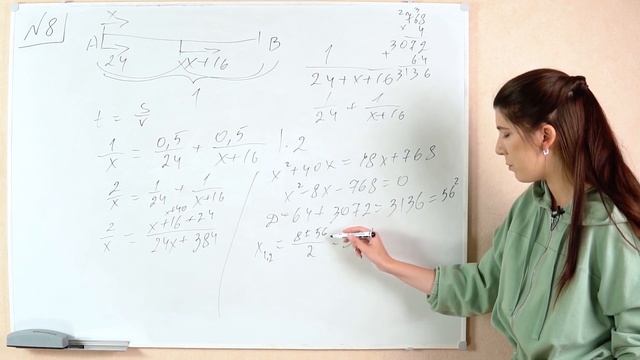 №8
x
A B
24 x x+16
1
t = S/v
1/x = 0,5/24 + 0,5/(x+16) | · 2
2/x = 1/24 + 1/(x+16)
x+40
2/x = (x+16+24)/(24x+384)
1/(24+x+16)
1/24 + 1/(x+16)
768
4
+3072
64
3136
x²+40x = 48x+768
x²-8x-768=0
D=64+3072=3136=56²
x1,2 = (8±56)/2 =